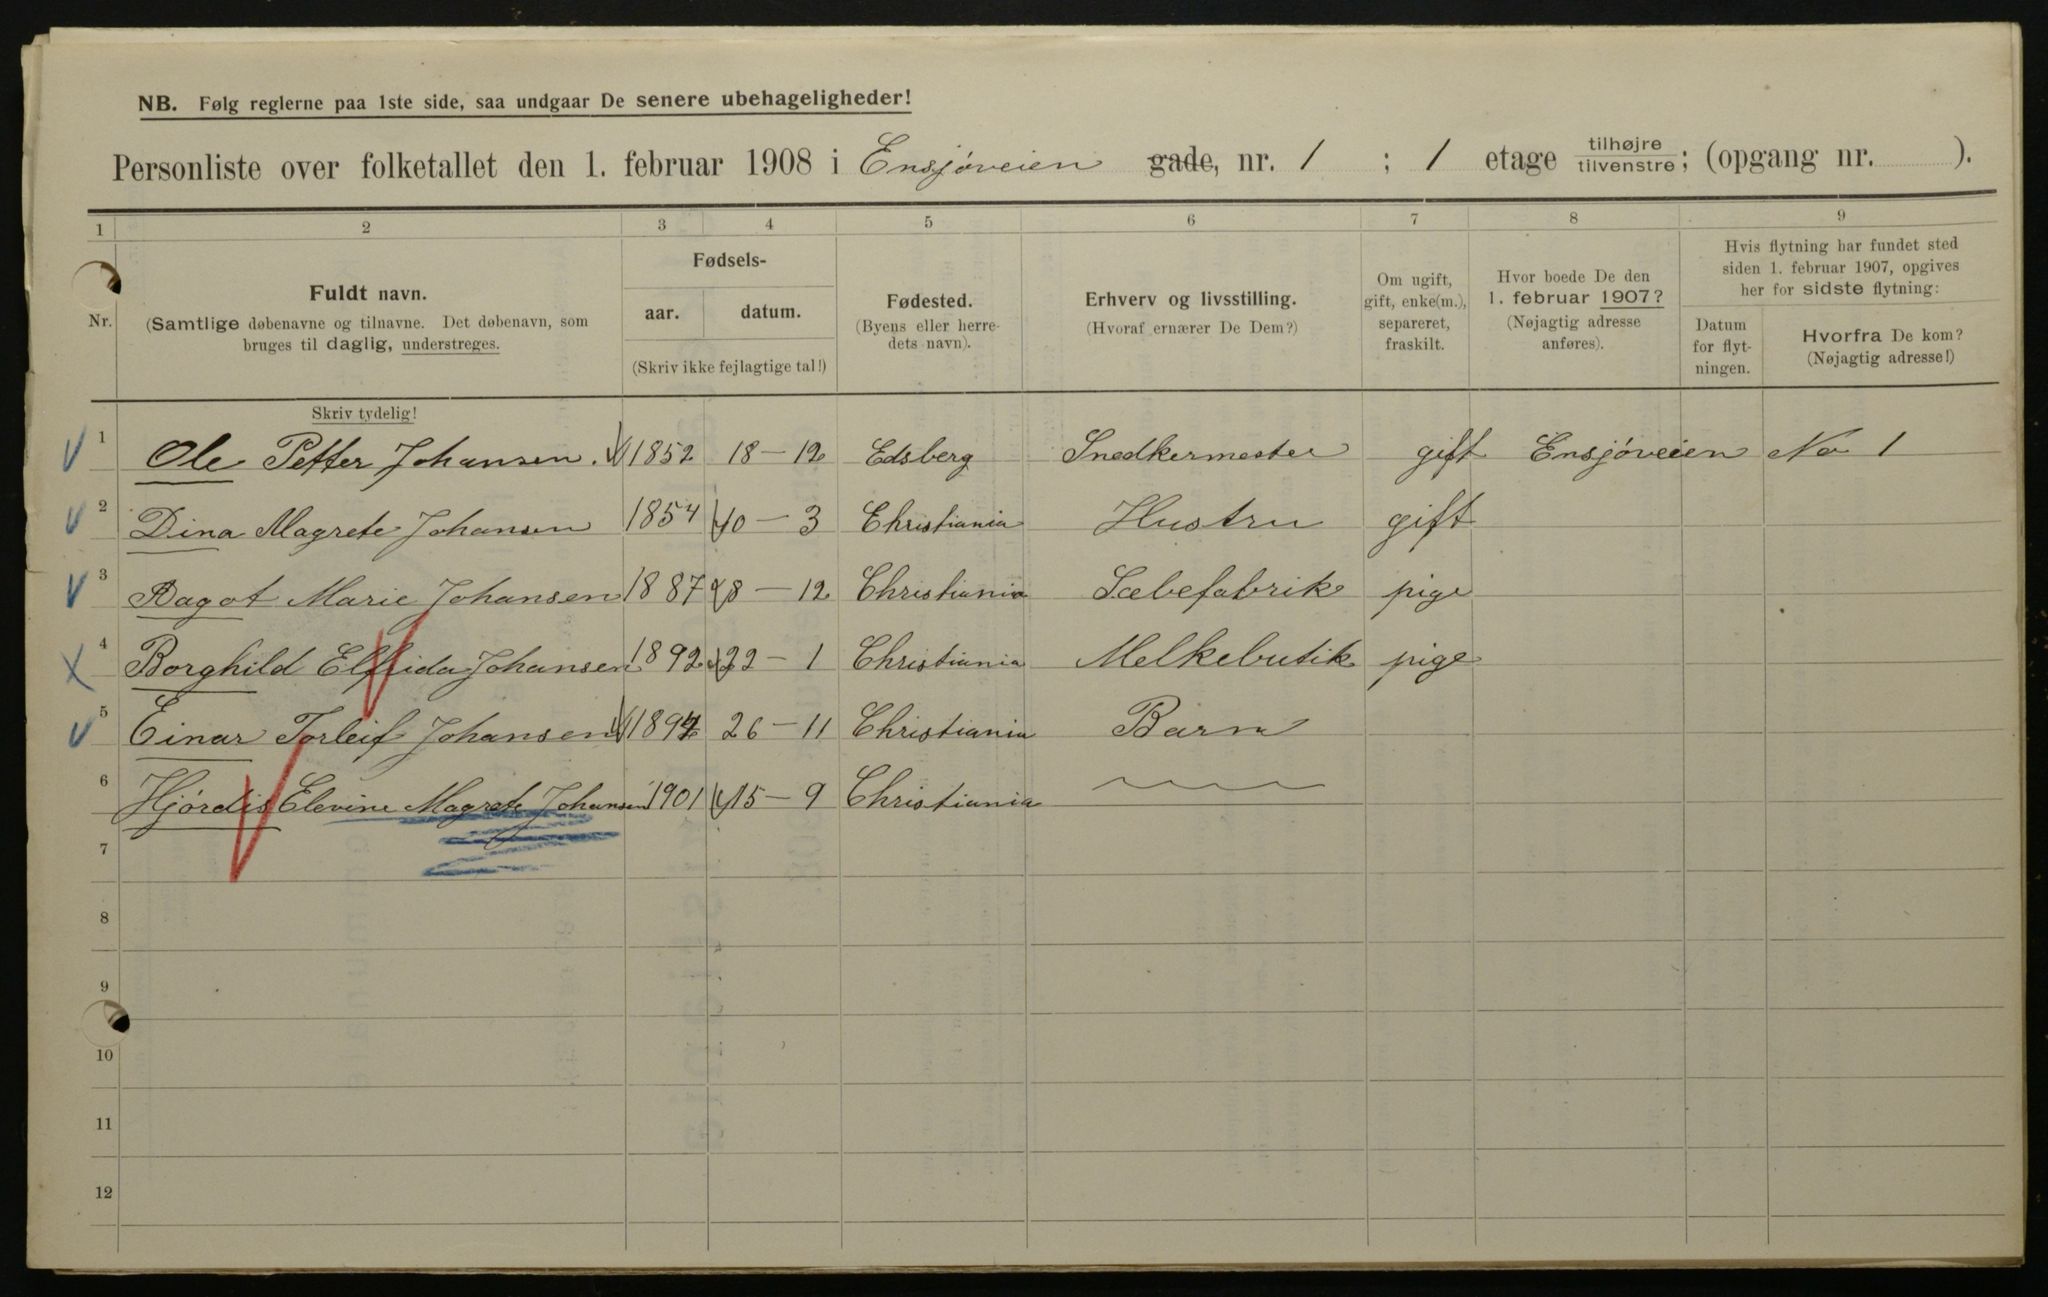 NB. Følg reglerne paa 1ste side, saa undgaar De senere ubehageligheder!
Personliste over folketallet den 1. februar 1908 i Ensjøveien gade, nr. 1 ; 1 etage tilhøjre tilvenstre; (opgang nr. ).
1 2 3 4 5 6 7 8 9
Nr.
Fuldt navn.
(Samtlige døbenavne og tilnavne. Det døbenavn, som
bruges til daglig, understreges.
Skriv tydelig!
Fødsels-
aar. datum.
(Skriv ikke fejlagtige tal!)
Fødested.
(Byens eller herre-
dets navn).
Erhverv og livsstilling.
(Hvoraf ernærer De Dem?)
Om ugift,
gift, enke(m.),
separeret,
fraskilt.
Hvor boede De den
1. februar 1907?
(Nøjagtig adresse
anføres).
Hvis flytning har fundet sted
siden 1. februar 1907, opgives
her for sidste flytning:
Datum
for flyt-
ningen.
Hvorfra De kom?
(Nøjagtig adresse!)
1 Ole Petter Johansen. 1852 18-12 Edsberg Snedkermester gift Ensjøveien No 1
2 Dina Magrete Johansen 1854 10-3 Christiania Hustru gift
3 Dagot Marie Johansen 1887 8-12 Christiania Sæbefabrik pige
4 Borghild Elfrida Johansen 1892 22-1 Christiania Melkebutik pige
5 Einar Torleif Johansen 26-11 Christiania Barn
6 Hjørdis Elevine Magrete Johansen 1901 15-9 Christiania
7
8
9
10
11
12